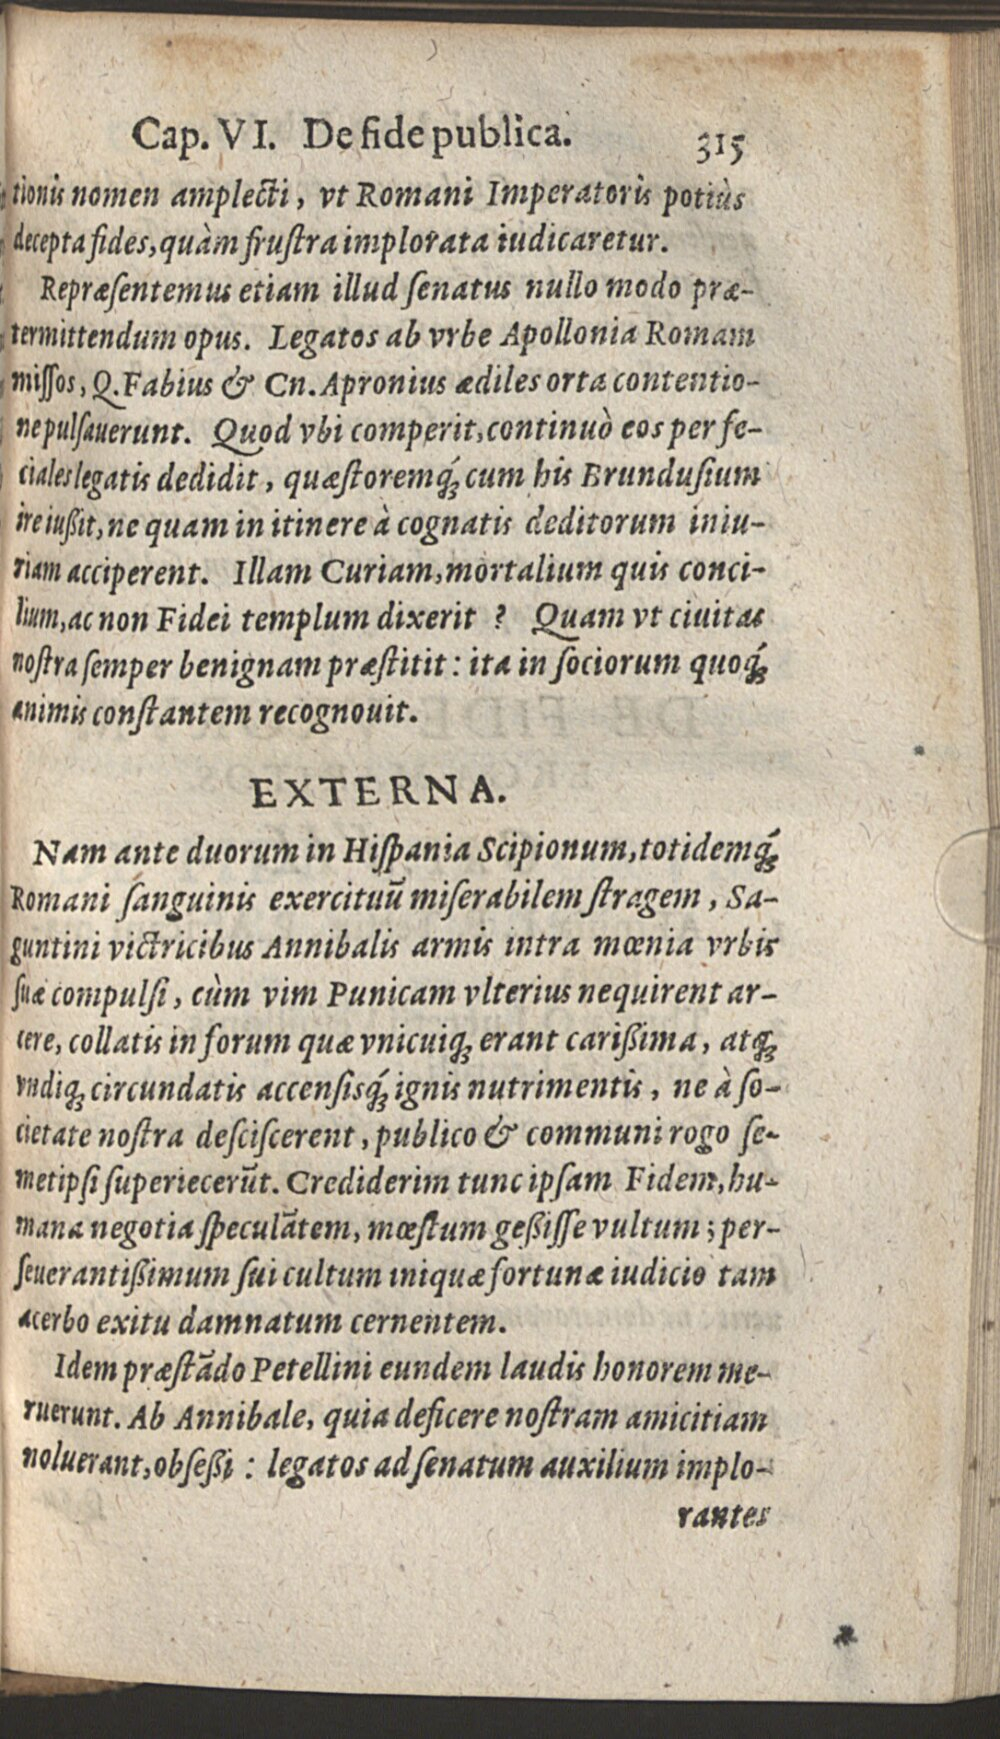 Cap. VI. De fide publica. 315
tionis nomen amplecti, vt Romani Imperatoris potiùs
decepta fides, quàm frustra implorata iudicaretur.
Repræsentemus etiam illud senatus nullo modo præ-
termittendum opus. Legatos ab vrbe Apollonia Romam
missos, Q. Fabius & Cn. Apronius ædiles orta contentio-
ne pulsauerunt. Quod vbi comperit, continuò eos per fe-
ciales legatis dedidit, quæstoremq́; cum his Brundusium
ire iußit, ne quam in itinere à cognatis deditorum iniu-
riam acciperent. Illam Curiam, mortalium quis conci-
lium, ac non Fidei templum dixerit ? Quam vt ciuitas
nostra semper benignam præstitit : ita in sociorum quoq́;
animis constantem recognouit.
EXTERNA.
Nam ante duorum in Hispania Scipionum, totidemq́;
Romani sanguinis exercituū miserabilem stragem, Sa-
guntini victricibus Annibalis armis intra mœnia vrbis
suæ compulsi, cùm vim Punicam vlterius nequirent ar-
cere, collatis in forum quæ vnicuiq; erant carißima, atq;
vndiq; circundatis accensisq́; ignis nutrimentis, ne à so-
cietate nostra desciscerent, publico & communi rogo se-
metipsi superiecerūt. Crediderim tunc ipsam Fidem, hu-
mana negotia speculātem, mœstum geßisse vultum ; per-
seuerantißimum sui cultum iniquæ fortunæ iudicio tam
acerbo exitu damnatum cernentem.
Idem præstādo Petellini eundem laudis honorem me-
ruerunt. Ab Annibale, quia deficere nostram amicitiam
noluerant, obseßi : legatos ad senatum auxilium implo-
rantes